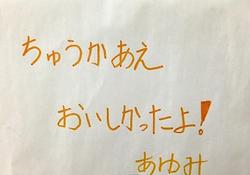 ちゅうかあえ
おいしかったよ!
あゆみ